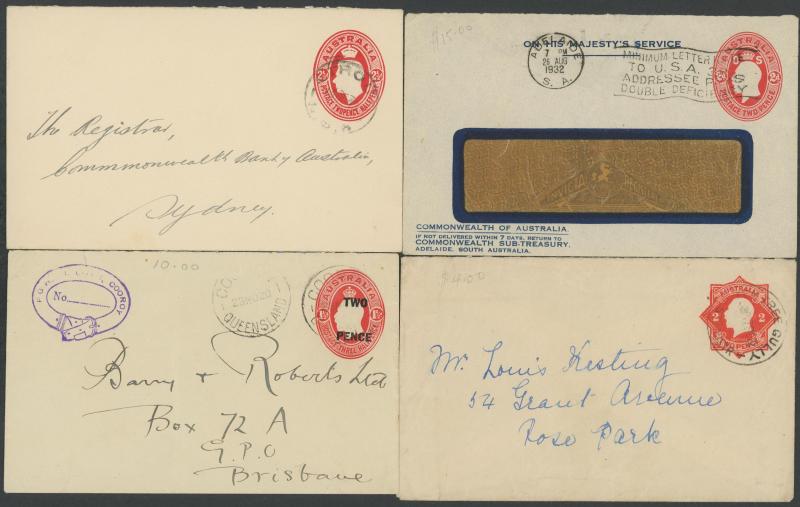 AUSTRALIA
2½ 2½
POSTAGE TWOPENCE HALFPENNY
The Registrar,
Commonwealth Bank of Australia,
Sydney.
$15.00
ON HIS MAJESTY'S SERVICE
ADELAIDE
7 PM
26 AUG
1932
S. A.
MINIMUM LETTER
TO U.S.A.
ADDRESSEE P
DOUBLE DEFICIE
AUSTRALIA
O S
POSTAGE TWO PENCE
COMMONWEALTH OF AUSTRALIA
IF NOT DELIVERED WITHIN 7 DAYS, RETURN TO
COMMONWEALTH SUB-TREASURY,
ADELAIDE, SOUTH AUSTRALIA.
10.00
COOROY
No.
QUEENSLAND
AUSTRALIA
1½ 1½
TWO
PENCE
Barry + Roberts Ltd
Box 72 A
G.P.O
Brisbane
$4.00
AUSTRALIA
2 2
GULLY
Mr. Louis Kesting
54 Grant Avenue
Rose Park